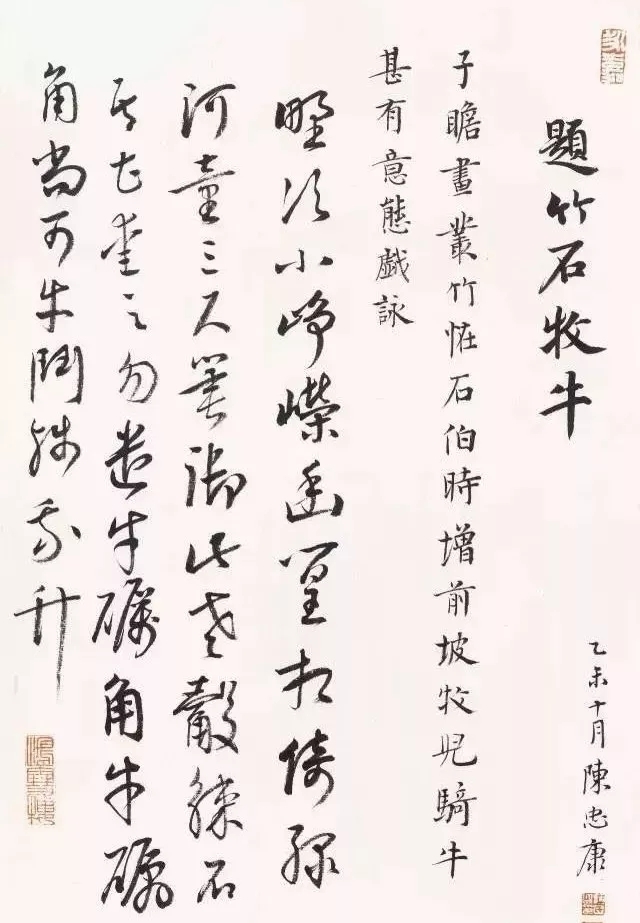 題竹石牧牛
子瞻畫叢竹恠石伯時增前坡牧兒騎牛
甚有意態戲詠
野次小崢嶸幽篁相倚綠
阿童三尺箠御此老觳觫石
吾甚愛之勿遣牛礪角牛礪
角尚可牛鬥殘我竹
乙未十月陳忠康